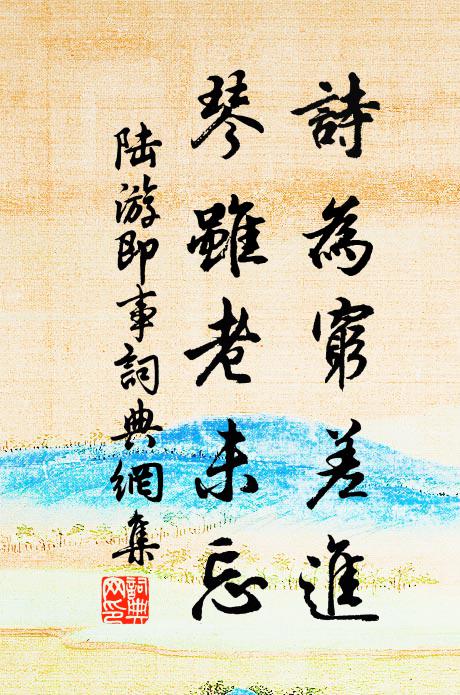 詩為窮差進
琴雖老未忘
陸游即事詞典網集
詞典